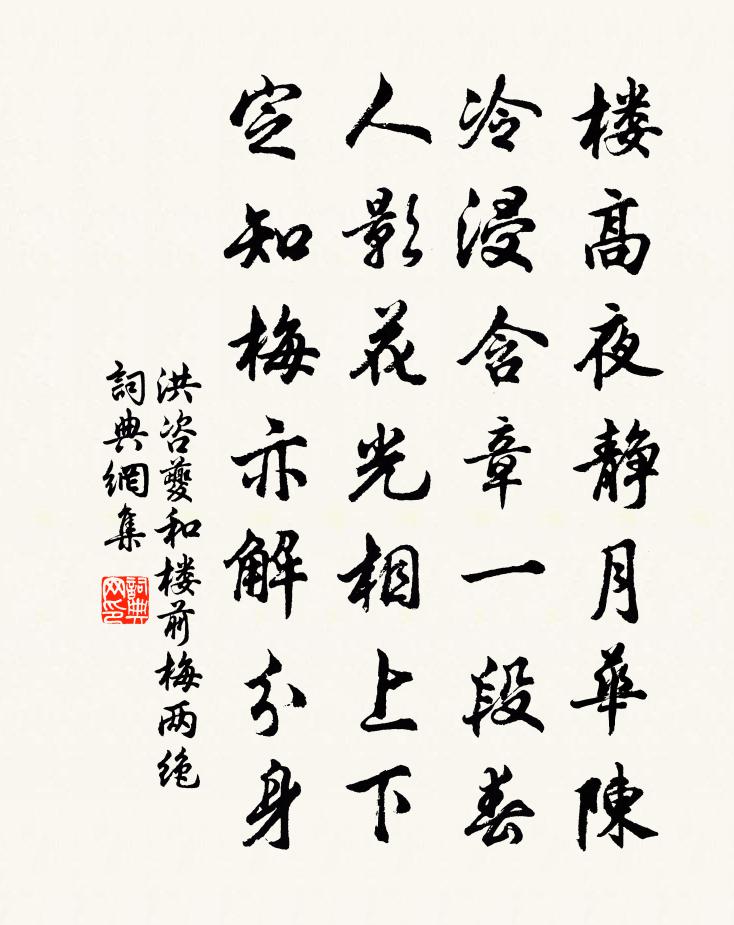 楼高夜静月华陳
冷浸含章一段春
人影花光相上下
定知梅亦解分身
洪咨夔和楼前梅两绝
詞典網集
詞典网印